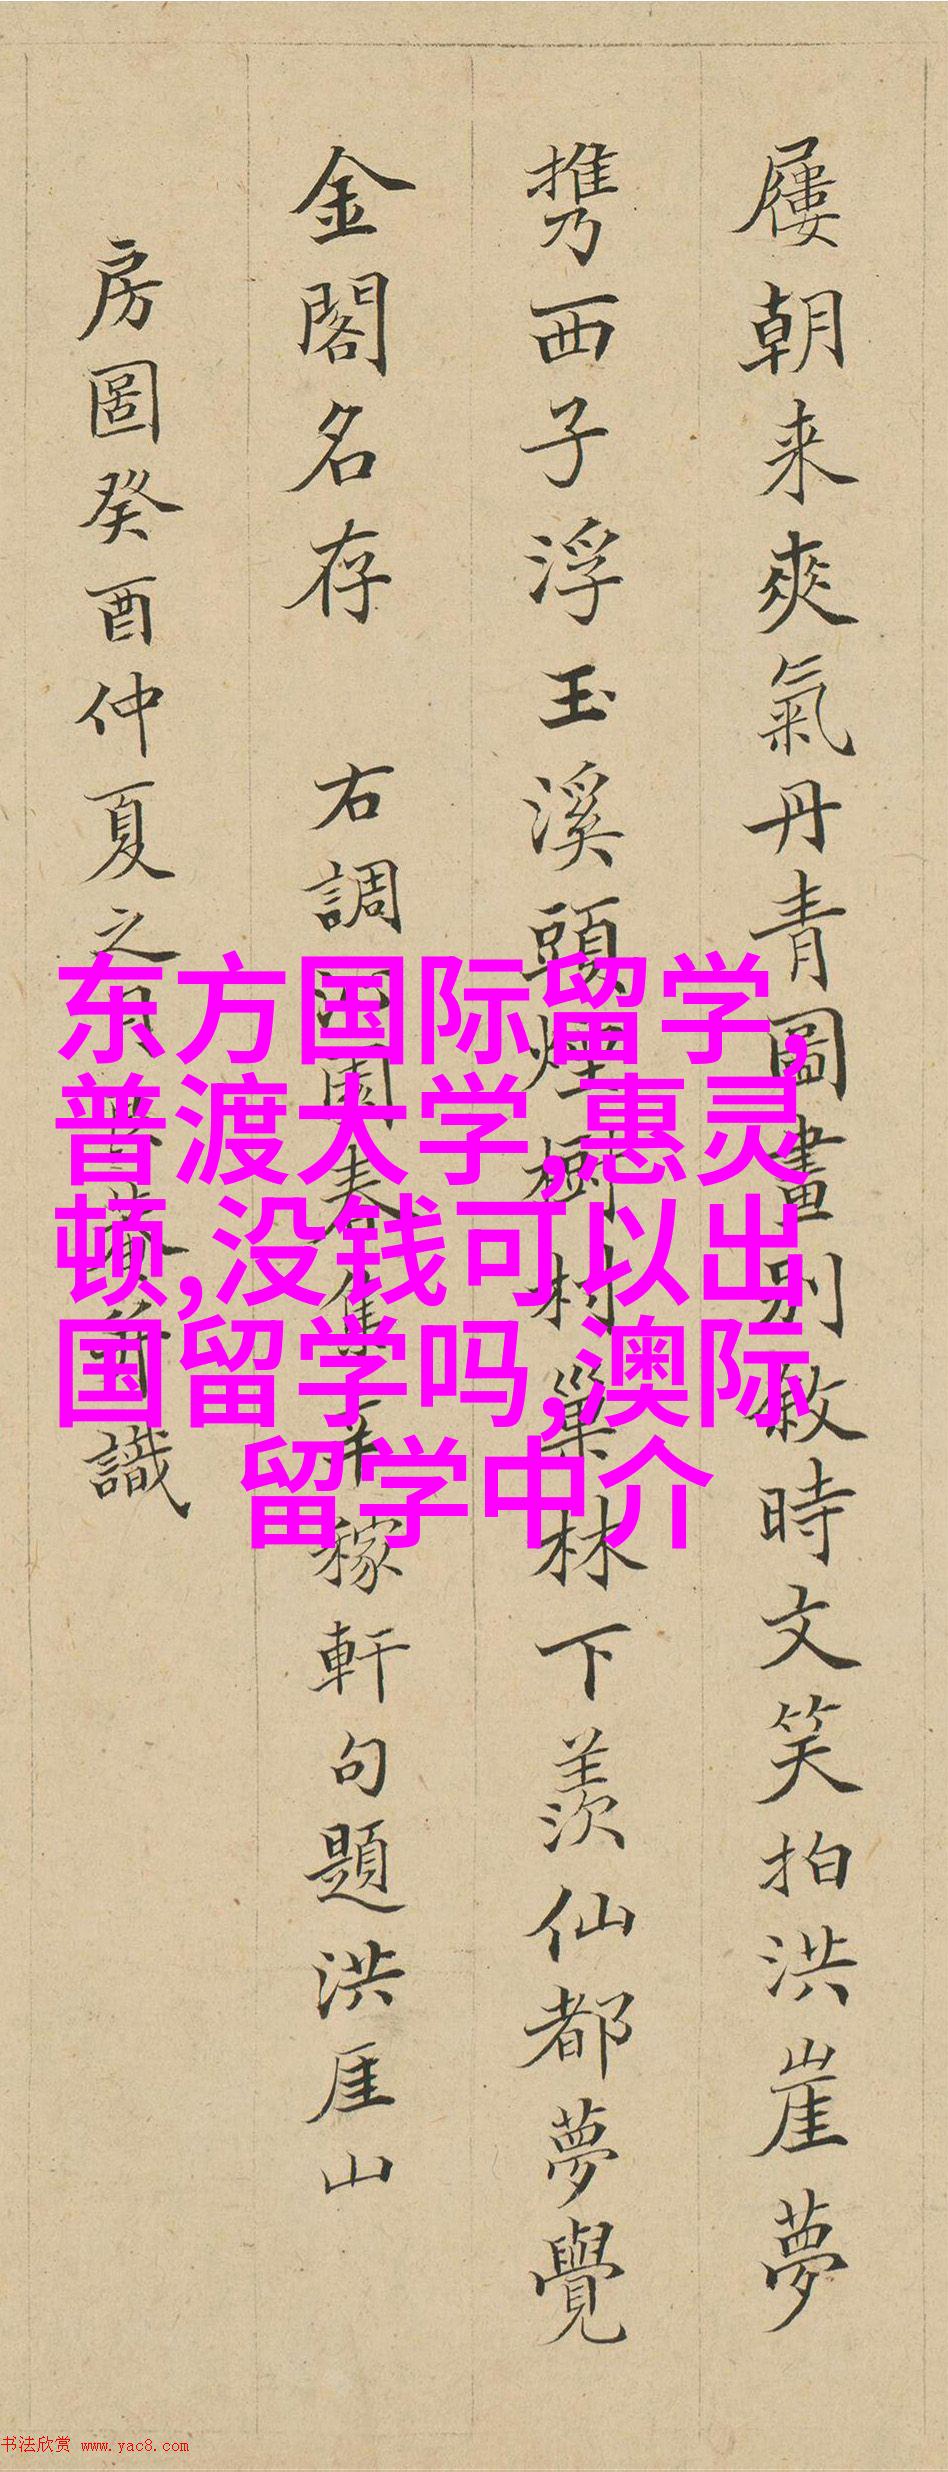 屨朝来爽氣丹青圖畫别敘時文笑拍洪崖夢
携西子浮玉溪頭煙樹村巢林下羨仙都夢覺
金閣名存 右調沁園春集辛稼軒句題洪厓山
房圖癸酉仲夏之月
識
东方国际留学,
普渡大学,惠灵
顿,没钱可以出
国留学吗,澳际
留学中介
书法欣赏 www.yac8.com